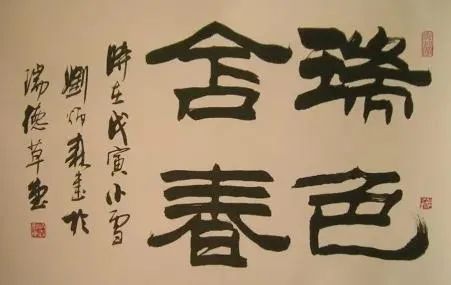 瑞色
含春
時在戊寅小雪
劉炳森書於
瑞德草堂